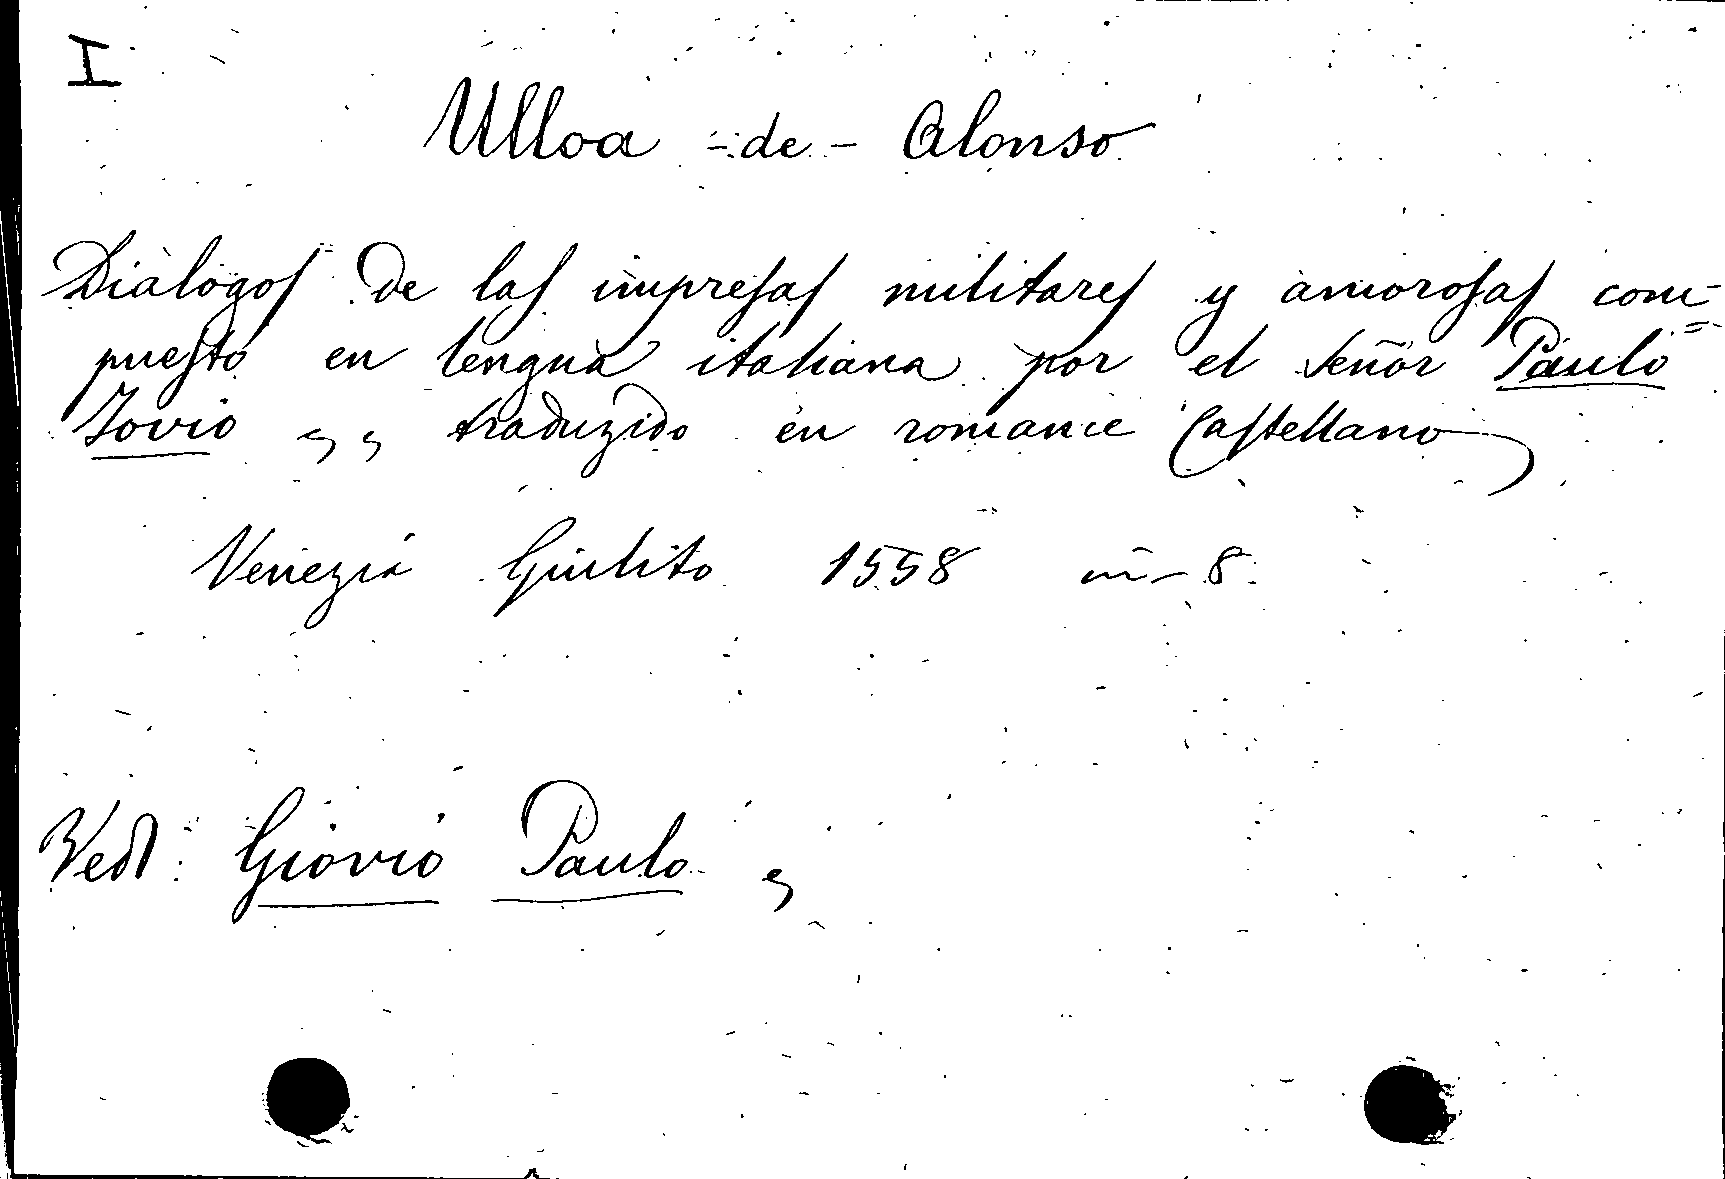 I
Ulloa - de - Alonso
Dialogos de las impresas militares y amorosas com=
puesto en lengua italiana por el señor Paulo
Jovio , , traduzido en romance Castellano
Venezia Giulito 1558 in - 8.
Vedi: Giovio Paulo ,